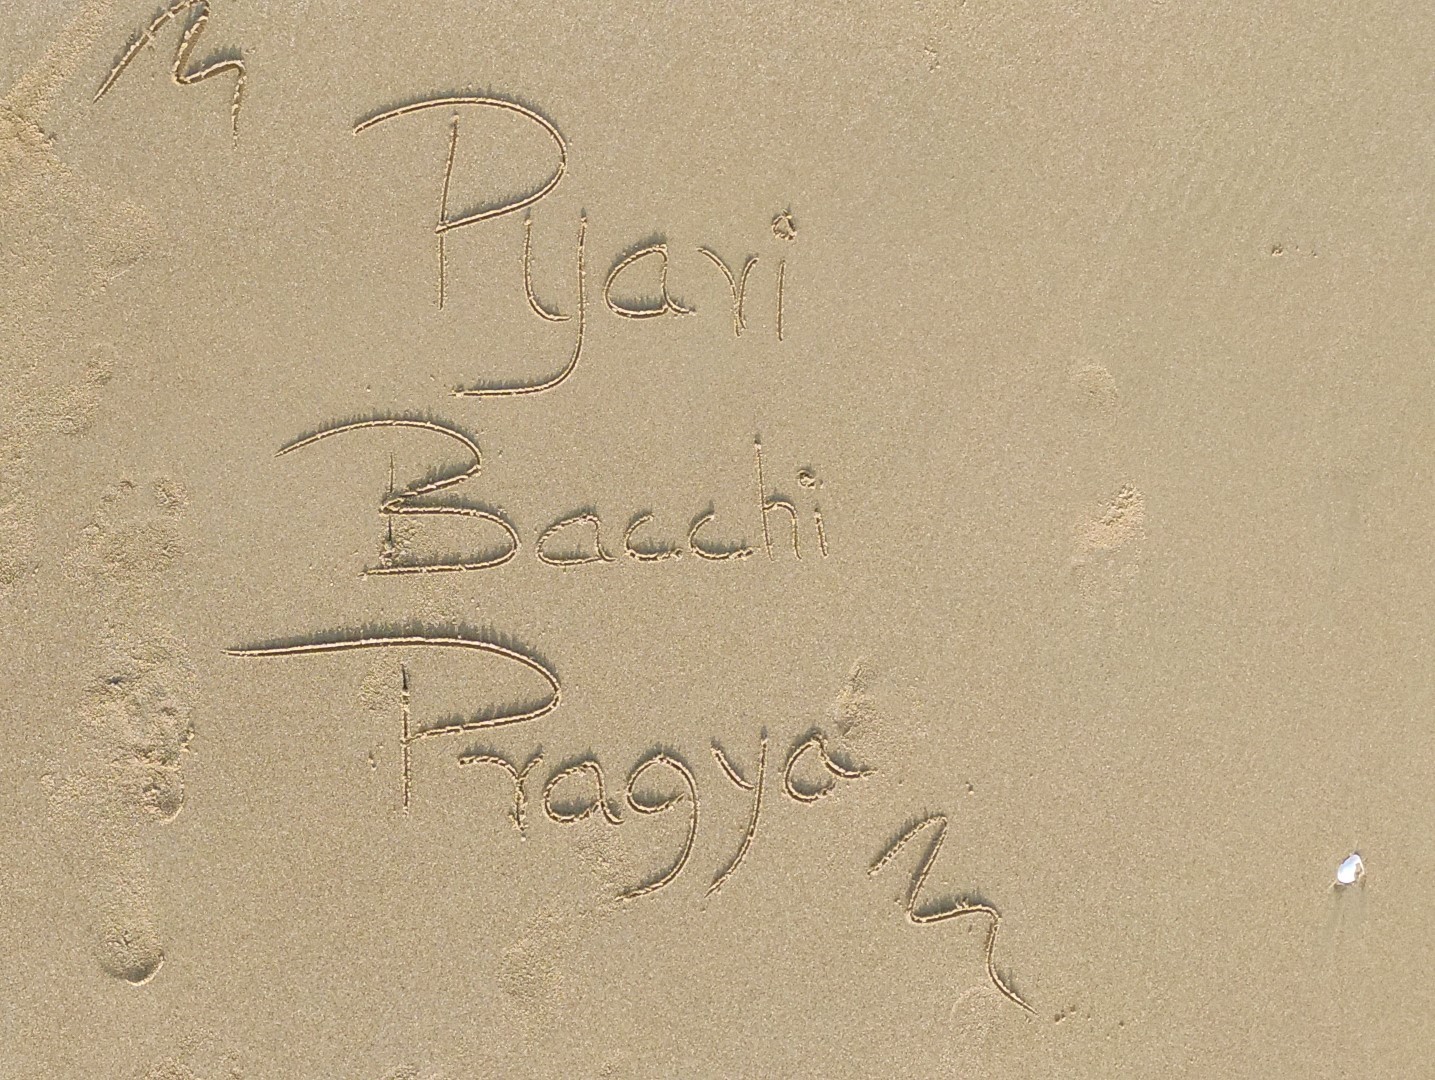 Pyari
Bacchi
Pragya